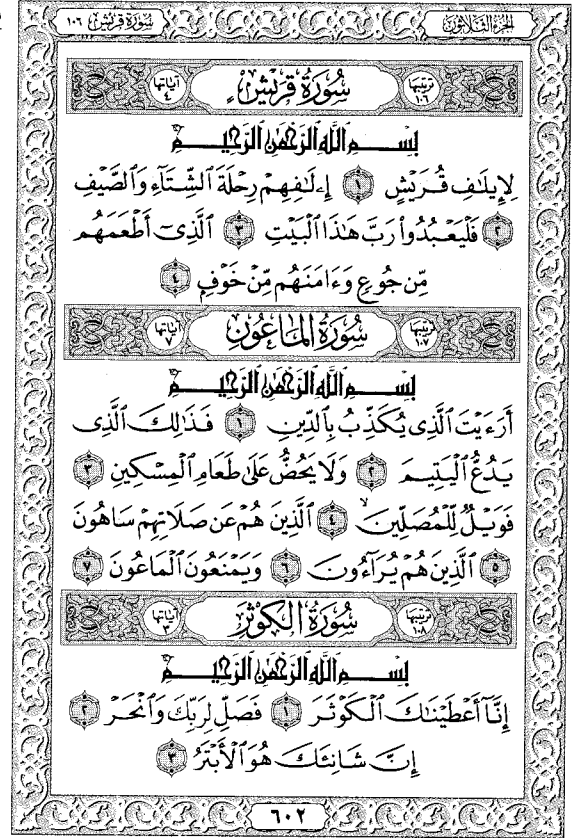 الجزء الثلاثون سورة قريش ١٠٦
ترتيبها ١٠٦ سُورَةُ قُرَيْشٍ آياتها ٤
بِسْمِ ٱللَّهِ ٱلرَّحْمَٰنِ ٱلرَّحِيمِ
لِإِيلَٰفِ قُرَيْشٍ ١ إِۦلَٰفِهِمْ رِحْلَةَ ٱلشِّتَآءِ وَٱلصَّيْفِ
٢ فَلْيَعْبُدُوا۟ رَبَّ هَٰذَا ٱلْبَيْتِ ٣ ٱلَّذِىٓ أَطْعَمَهُم
مِّن جُوعٍ وَءَامَنَهُم مِّنْ خَوْفٍ ٤
ترتيبها ١٠٧ سُورَةُ المَاعُونِ آياتها ٧
بِسْمِ ٱللَّهِ ٱلرَّحْمَٰنِ ٱلرَّحِيمِ
أَرَءَيْتَ ٱلَّذِى يُكَذِّبُ بِٱلدِّينِ ١ فَذَٰلِكَ ٱلَّذِى
يَدُعُّ ٱلْيَتِيمَ ٢ وَلَا يَحُضُّ عَلَىٰ طَعَامِ ٱلْمِسْكِينِ ٣
فَوَيْلٌ لِّلْمُصَلِّينَ ٤ ٱلَّذِينَ هُمْ عَن صَلَاتِهِمْ سَاهُونَ
٥ ٱلَّذِينَ هُمْ يُرَآءُونَ ٦ وَيَمْنَعُونَ ٱلْمَاعُونَ ٧
ترتيبها ١٠٨ سُورَةُ الكَوْثَرِ آياتها ٣
بِسْمِ ٱللَّهِ ٱلرَّحْمَٰنِ ٱلرَّحِيمِ
إِنَّآ أَعْطَيْنَٰكَ ٱلْكَوْثَرَ ١ فَصَلِّ لِرَبِّكَ وَٱنْحَرْ ٢
إِنَّ شَانِئَكَ هُوَ ٱلْأَبْتَرُ ٣
٦٠٢